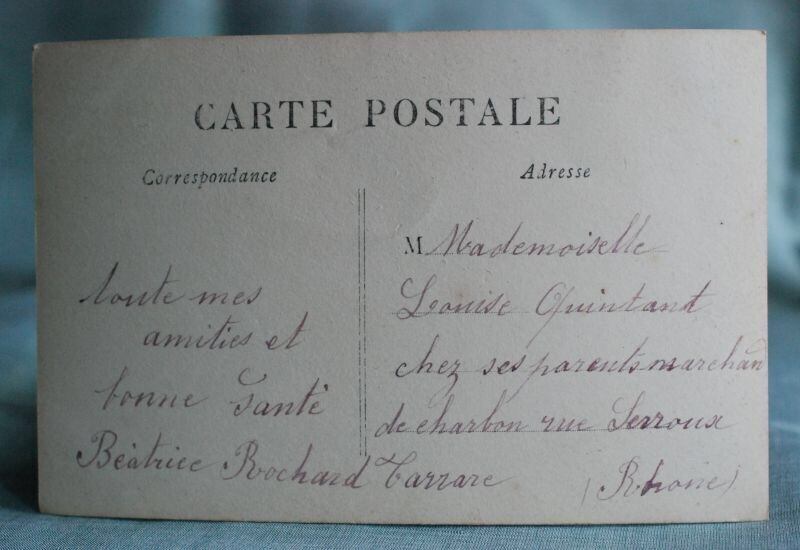 CARTE POSTALE
Correspondance
Adresse
toute mes
amities et
bonne santé
Béatrice Rochard
M Mademoiselle
Louise Quintant
chez ses parents marchan
de charbon rue Serroux
Tarrare (Rhone)